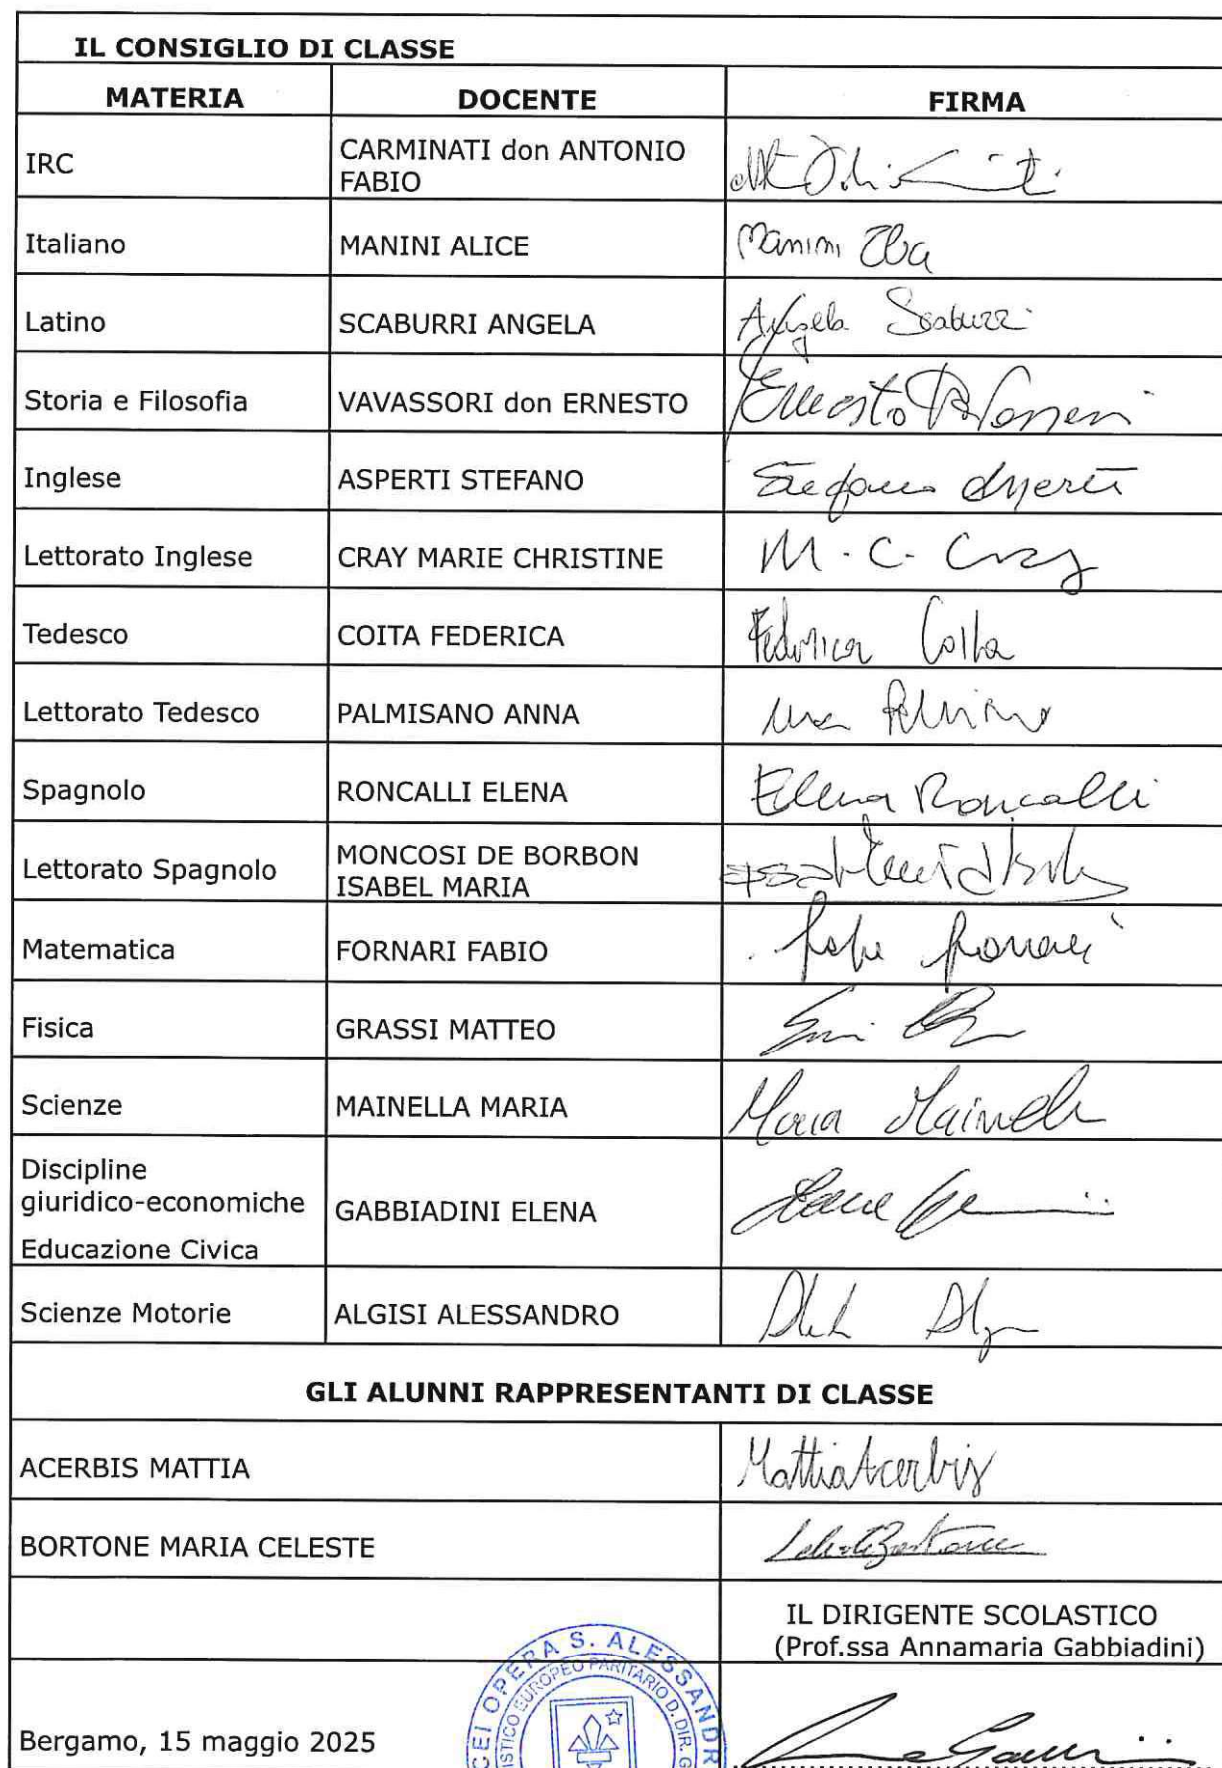 IL CONSIGLIO DI CLASSE
MATERIA DOCENTE FIRMA
IRC CARMINATI don ANTONIO
FABIO
Italiano MANINI ALICE Manini
Latino SCABURRI ANGELA Angela Scaburri
Storia e Filosofia VAVASSORI don ERNESTO Ernesto
Inglese ASPERTI STEFANO Stefano Asperti
Lettorato Inglese CRAY MARIE CHRISTINE M. C. Cray
Tedesco COITA FEDERICA Federica Coita
Lettorato Tedesco PALMISANO ANNA
Spagnolo RONCALLI ELENA Elena Roncalli
Lettorato Spagnolo MONCOSI DE BORBON
ISABEL MARIA
Matematica FORNARI FABIO Fabio Fornari
Fisica GRASSI MATTEO
Scienze MAINELLA MARIA Maria Mainella
Discipline
giuridico-economiche
GABBIADINI ELENA
Educazione Civica
Scienze Motorie ALGISI ALESSANDRO
GLI ALUNNI RAPPRESENTANTI DI CLASSE
ACERBIS MATTIA Mattia Acerbis
BORTONE MARIA CELESTE Celeste Bortone
IL DIRIGENTE SCOLASTICO
(Prof.ssa Annamaria Gabbiadini)
CEI OPERA S. ALESSANDR
ISTICO EUROPEO PARITARIO D. DIR. G
Bergamo, 15 maggio 2025